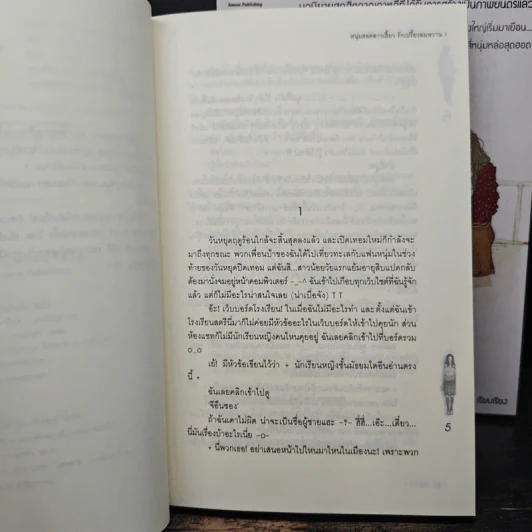 หนุ่มฮอตสาวเฮี้ยว รักเปรี้ยวอมหวาน 1
1
วันหยุดฤดูร้อนใกล้จะสิ้นสุดลงแล้ว และเปิดเทอมใหม่ก็กำลังจะ
มาถึงทุกขณะ พวกเพื่อนบ้าของฉันได้ไปเที่ยวทะเลกับแฟนหนุ่มในช่วง
ท้ายของวันหยุดปิดเทอม แต่ฉันสิ...สาวน้อยวัยแรกแย้มอายุสิบแปดกลับ
ต้องมานั่งจมอยู่หน้าคอมพิวเตอร์ -_-^ ฉันเข้าไปเกือบทุกเว็บไซต์ที่ฉันรู้จัก
แล้ว แต่ก็ไม่มีอะไรน่าสนใจเลย (น่าเบื่อจัง) T T
อ๊ะ! เว็บบอร์ดโรงเรียน! ในเมื่อฉันไม่มีอะไรทำ และตั้งแต่ฉันเข้า
โรงเรียนสตรีนี่มาก็ไม่ค่อยมีหัวข้ออะไรในเว็บบอร์ดให้เข้าไปคุยนัก ส่วน
ห้องแชทก็ไม่มีนักเรียนหญิงคนไหนคุยอยู่ ฉันเลยคลิกเข้าไปที่บอร์ดรวม
O_O
เย้! มีหัวข้อเขียนไว้ว่า + นักเรียนหญิงชั้นมัธยมไดอีนอ่านตรง
นี้ +
ฉันเลยคลิกเข้าไปดู
'จีอึนซอง'
ถ้าฉันเดาไม่ผิด น่าจะเป็นชื่อผู้ชายแฮะ -?- ฮี่ฮี่...เอ๊ะ...เดี๋ยว...
นี่มันเรื่องบ้าอะไรเนี่ย -O-
+ นี่พวกเธอ! อย่าเสนอหน้าไปไหนมาไหนในเมืองนะ! เพราะพวก
5
ใหญ่เริ่มมาเยือน...
หนุ่มหล่อสุดฮอต
เรียบเรียง